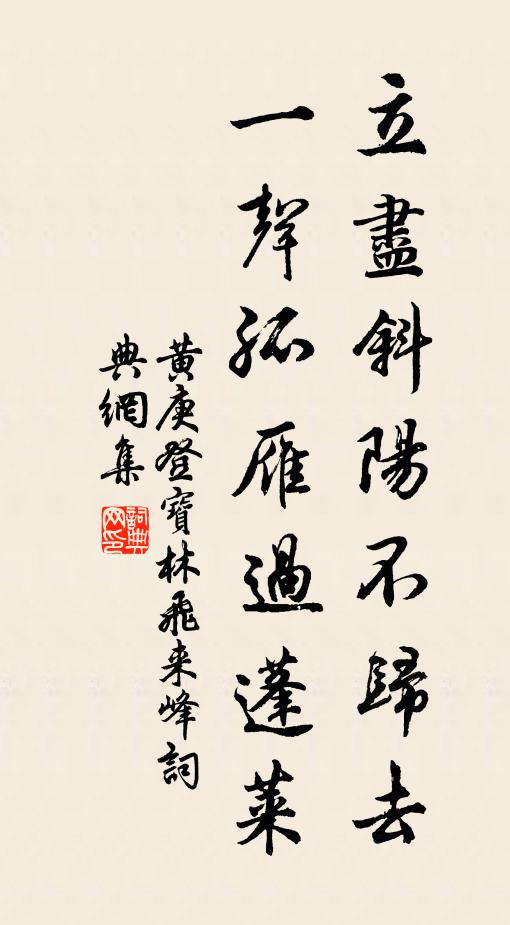 立盡斜陽不歸去
一聲孤雁過蓬萊
黄庚登寶林飛来峰詞
典網集
詞典
网印